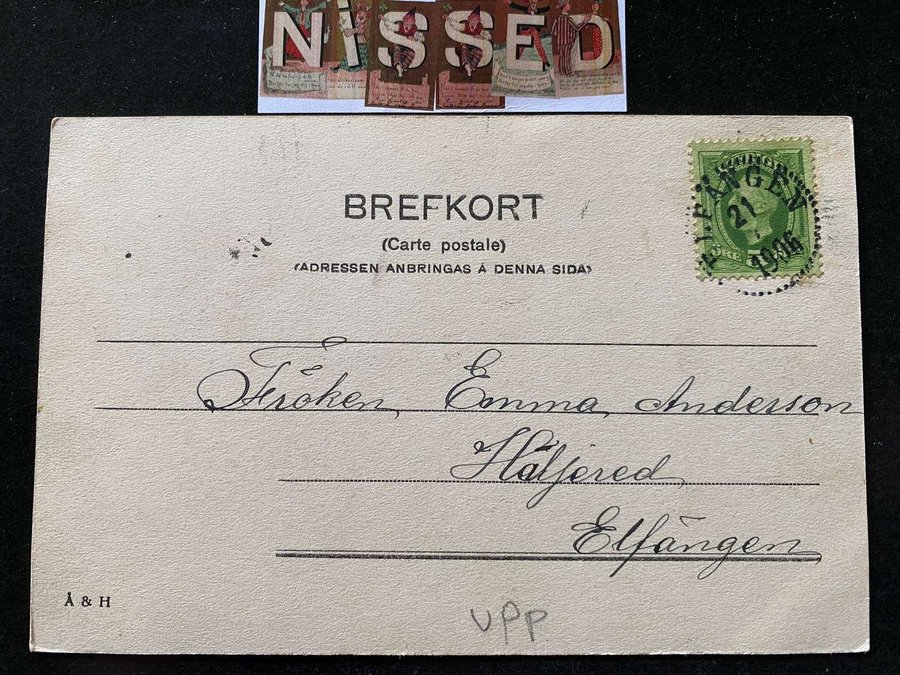 NISSED
BREFKORT
(Carte postale)
(ADRESSEN ANBRINGAS Å DENNA SIDA)
ELFÄNGEN
21
1906
ÖRE
Fröken Emma Anderson
Häljered
Elfängen
Å & H
upp